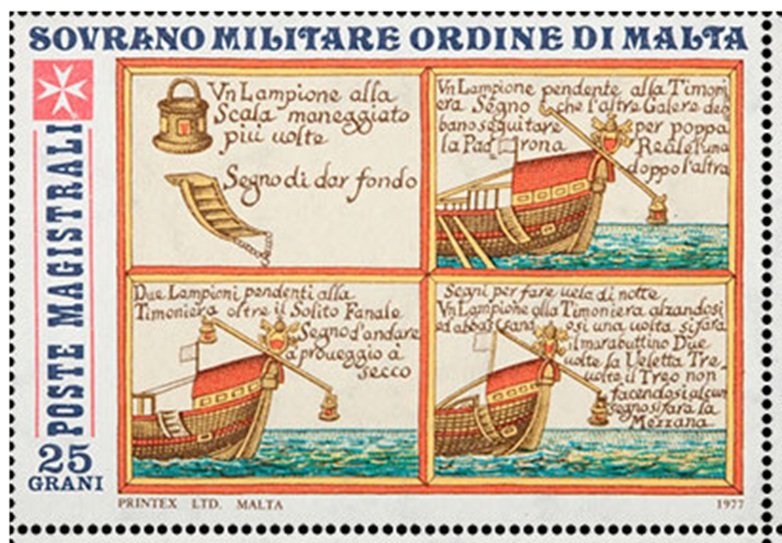 SOVRANO MILITARE ORDINE DI MALTA
POSTE MAGISTRALI
25
GRANI
Vn Lampione alla
Scala maneggiato
più uolte
Segno di dar fondo
Vn Lampione pendente alla Timoni
era Segno che l'altre Galere deb
bano seguitare per poppa
la Padrona Reale l'una
doppo l'altra
Due Lampioni pendenti alla
Timoniera oltre il Solito Fanale
Segno d'andare
a proueggio à
secco
Segni per fare uela di notte
Vn Lampione alla Timoniera alzandosi
ed abbassandosi una uolta si farà
il marabuttino Due
uolte la Ueletta Tre
uolte il Treo non
facendosi alcun
segno si farà la
Mezzana
PRINTEX LTD. MALTA
1977